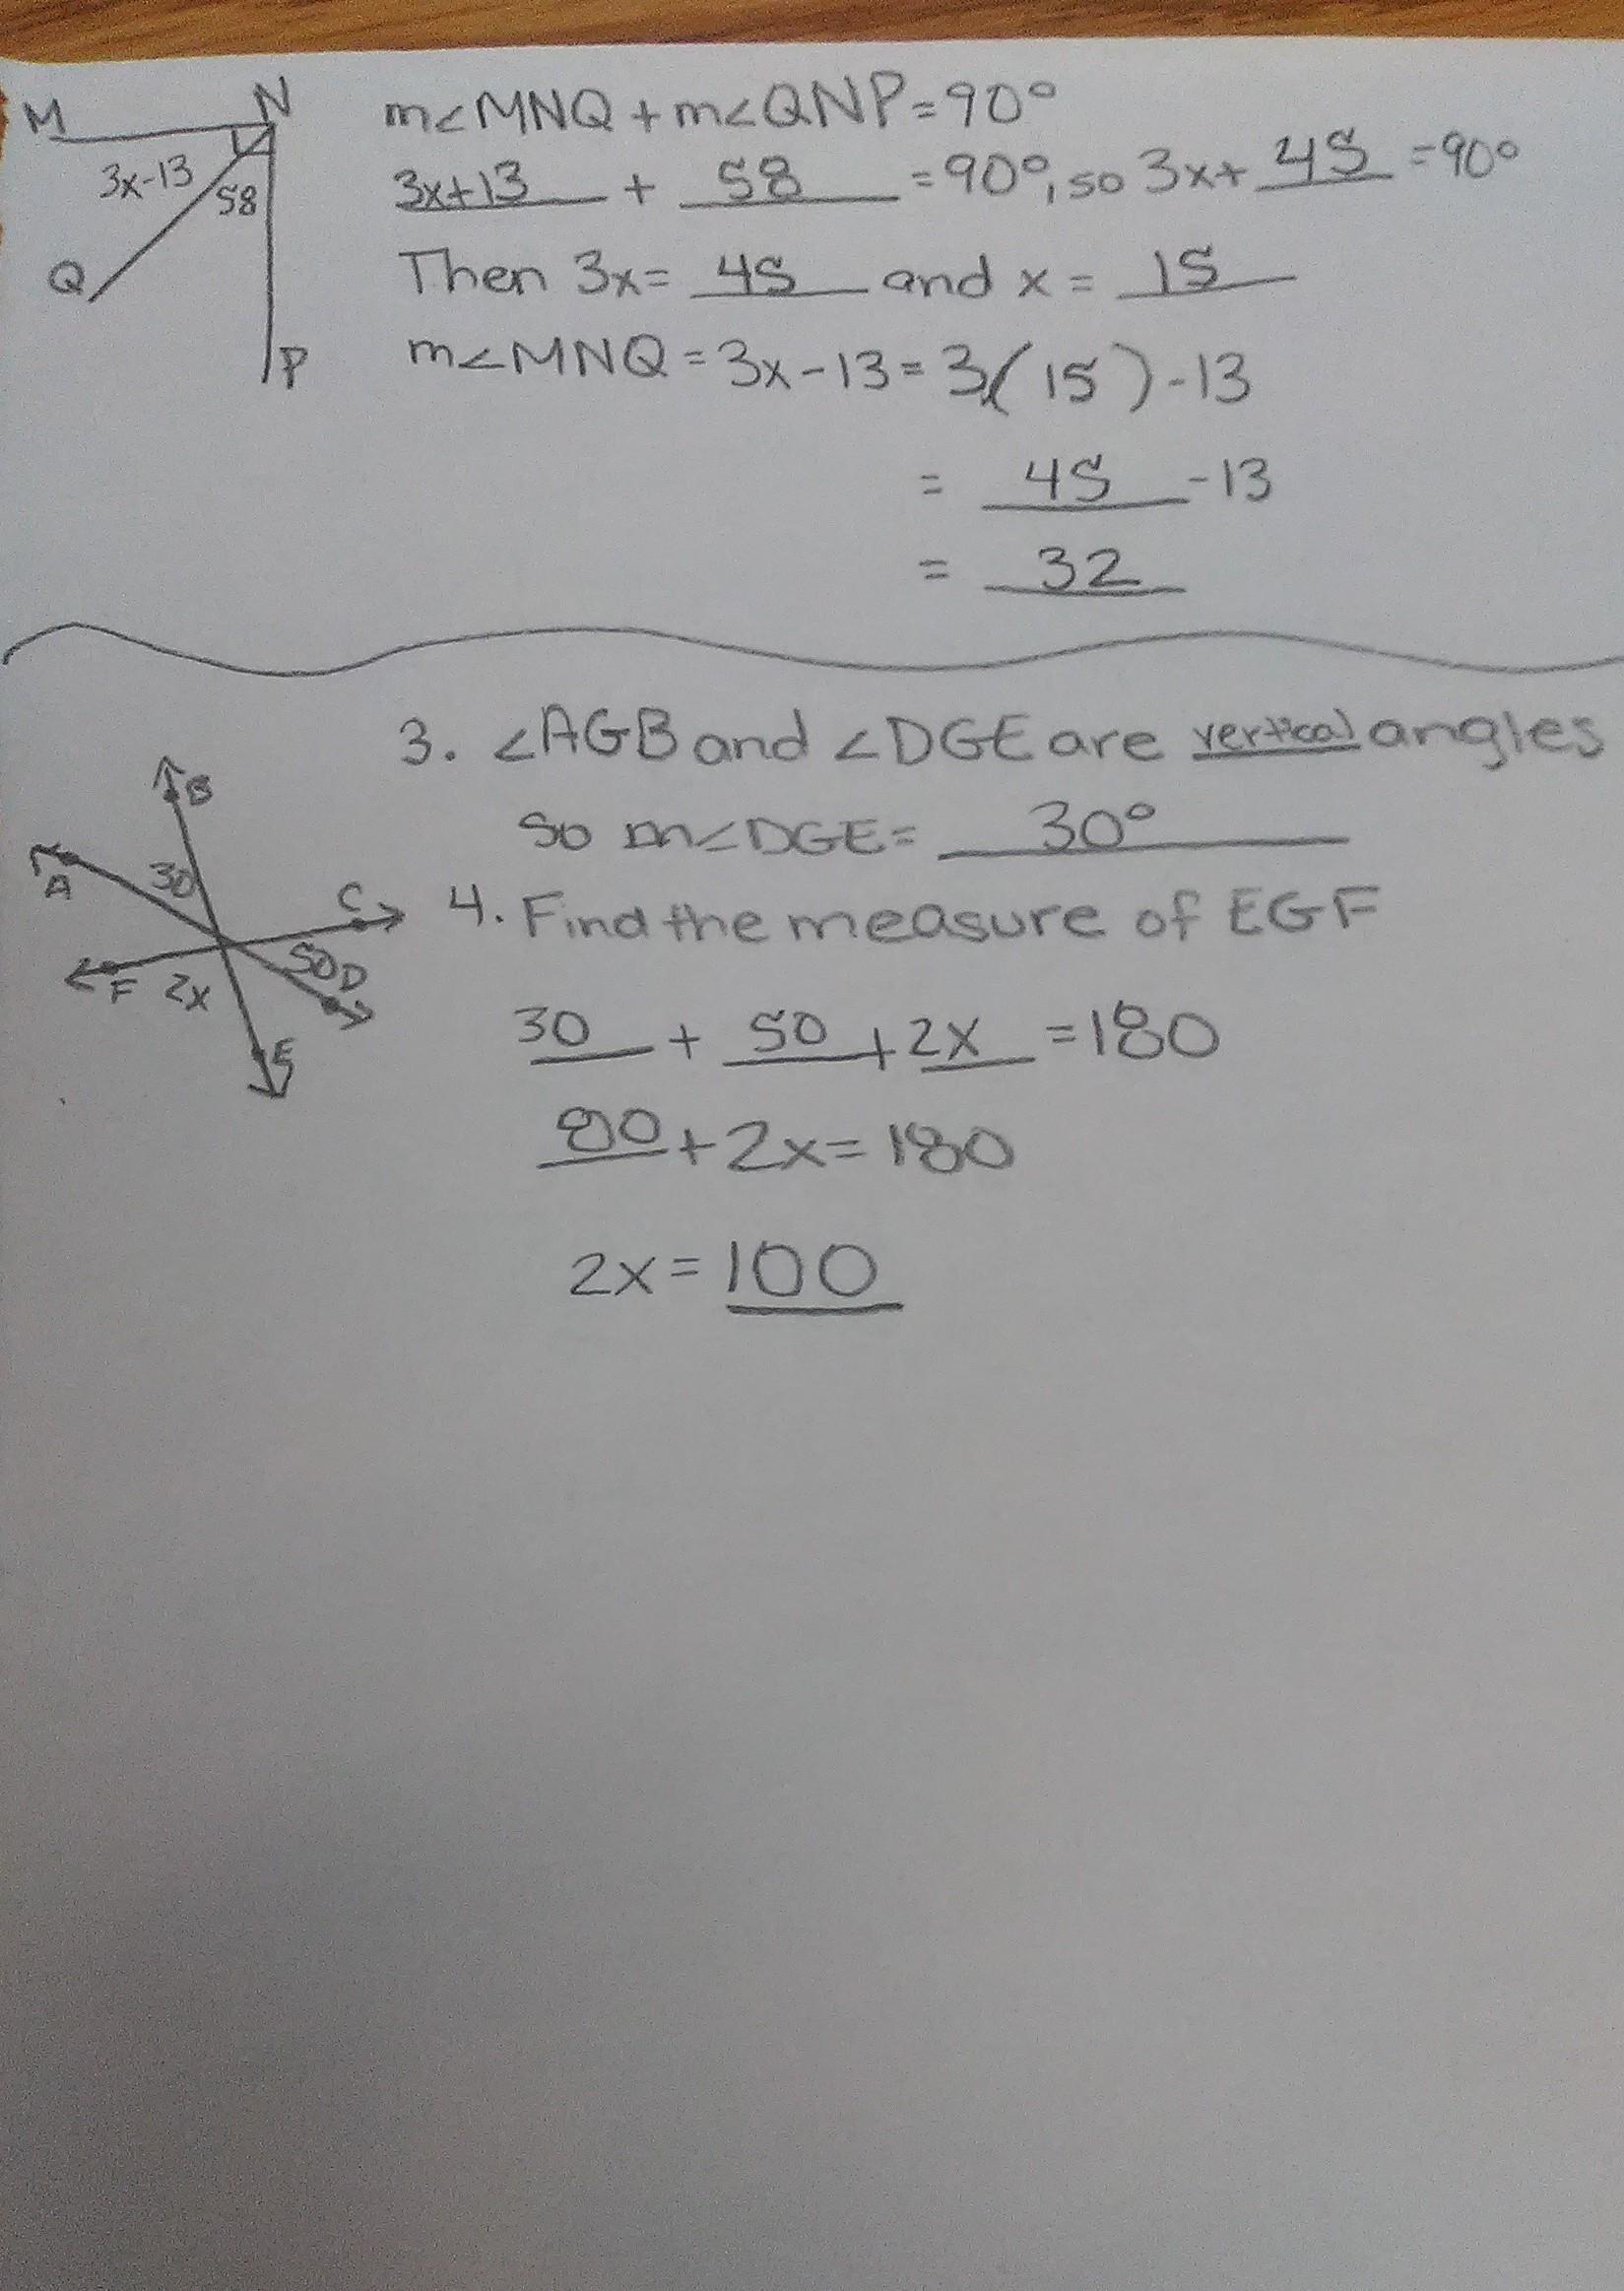 M
N
3x-13
58
Q
P
m<MNQ + m<QNP = 90°
3x+13 + 58 = 90°, so 3x+ 45 = 90°
Then 3x = 45 and x = 15
m<MNQ = 3x-13 = 3( 15 ) -13
= 45 -13
= 32
3. <AGB and <DGE are vertical angles
so m<DGE = 30°
B
A
30
C
50
D
F
2x
E
4. Find the measure of EGF
30 + 50 + 2x = 180
80 + 2x = 180
2x = 100